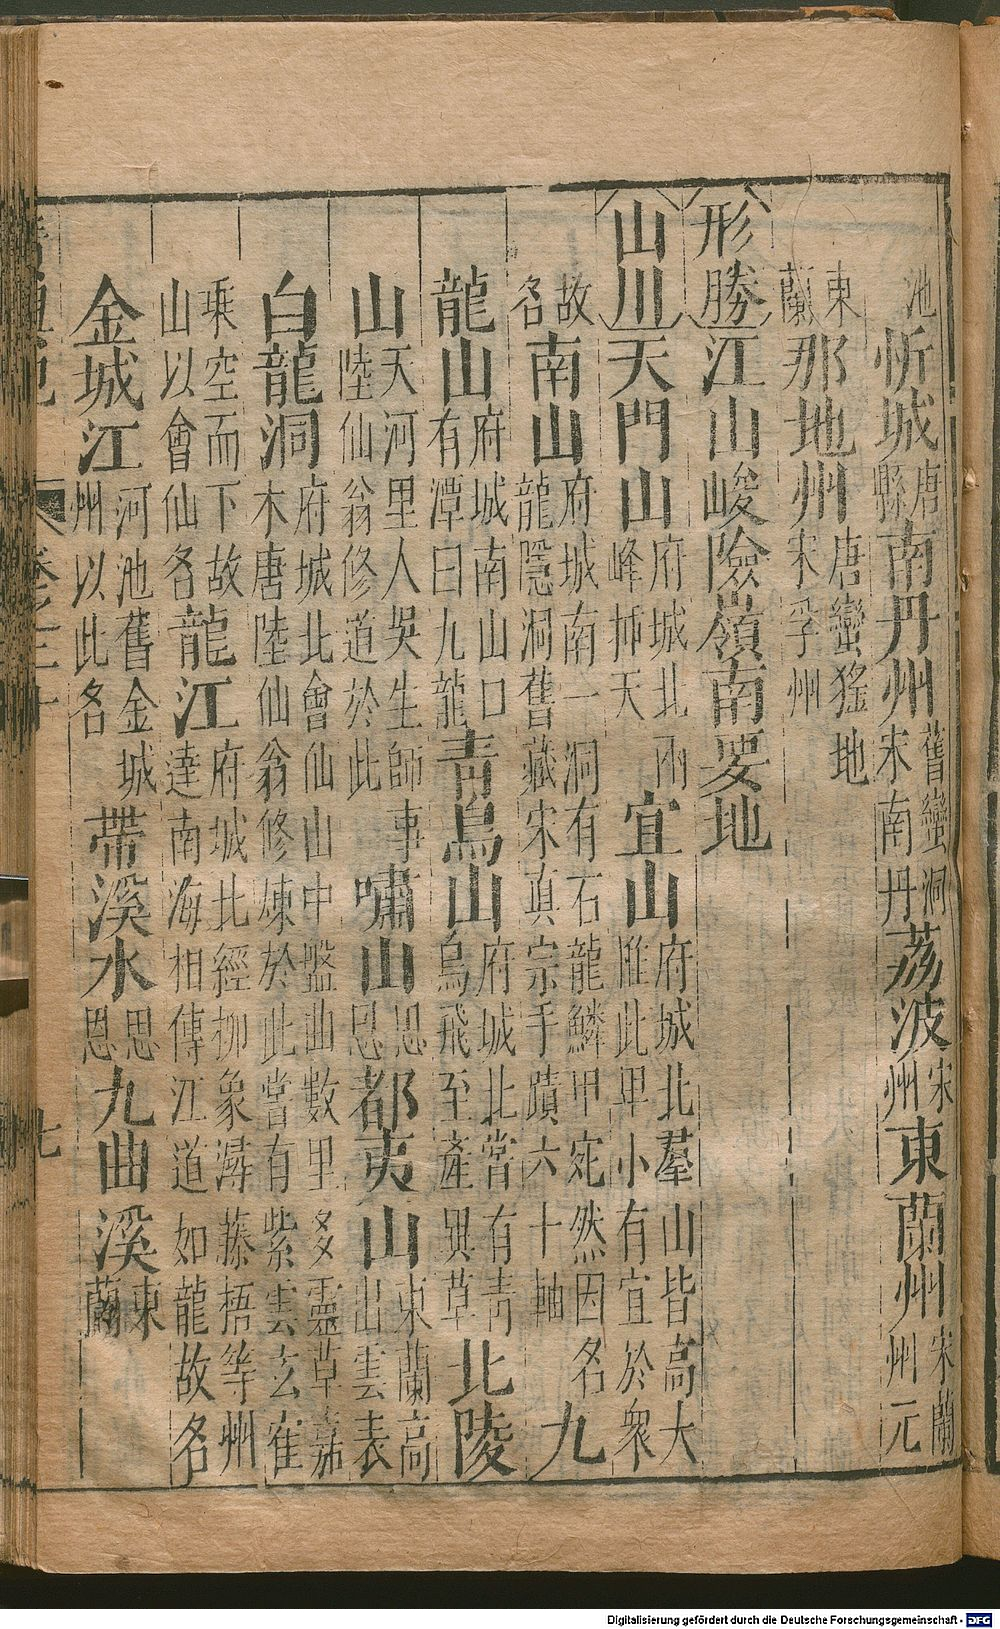 池忻城唐縣南丹州舊蠻洞宋南丹荔波宋州東蘭州宋蘭州元
東蘭那地州唐蠻猺地宋孚州
形勝江山峻險嶺南要地
山川天門山府城北兩峰揷天宜山府城北羣山皆高大雁此卑小有宜於衆
故名南山府城南一洞有石龍鱗甲宛然因名龍隱洞舊藏宋真宗手蹟六十軸九
龍山府城南山口有潭曰九龍青鳥山府城北嘗有青鳥飛至產異草北陵
山天河里人吳生師事陸仙翁修道於此嘯山思恩都夷山東蘭高出雲表
白龍洞府城北會仙山中盤曲數里多靈草嘉木唐陸仙翁修煉於此嘗有紫雲玄雀
乘空而下故山以會仙名龍江府城北經柳象潯藤梧等州達南海相傳江道如龍故名
金城江河池舊金城州以此名帶溪水思恩九曲溪東蘭
卷之三十
七
Digitalisierung gefördert durch die Deutsche Forschungsgemeinschaft - DFG